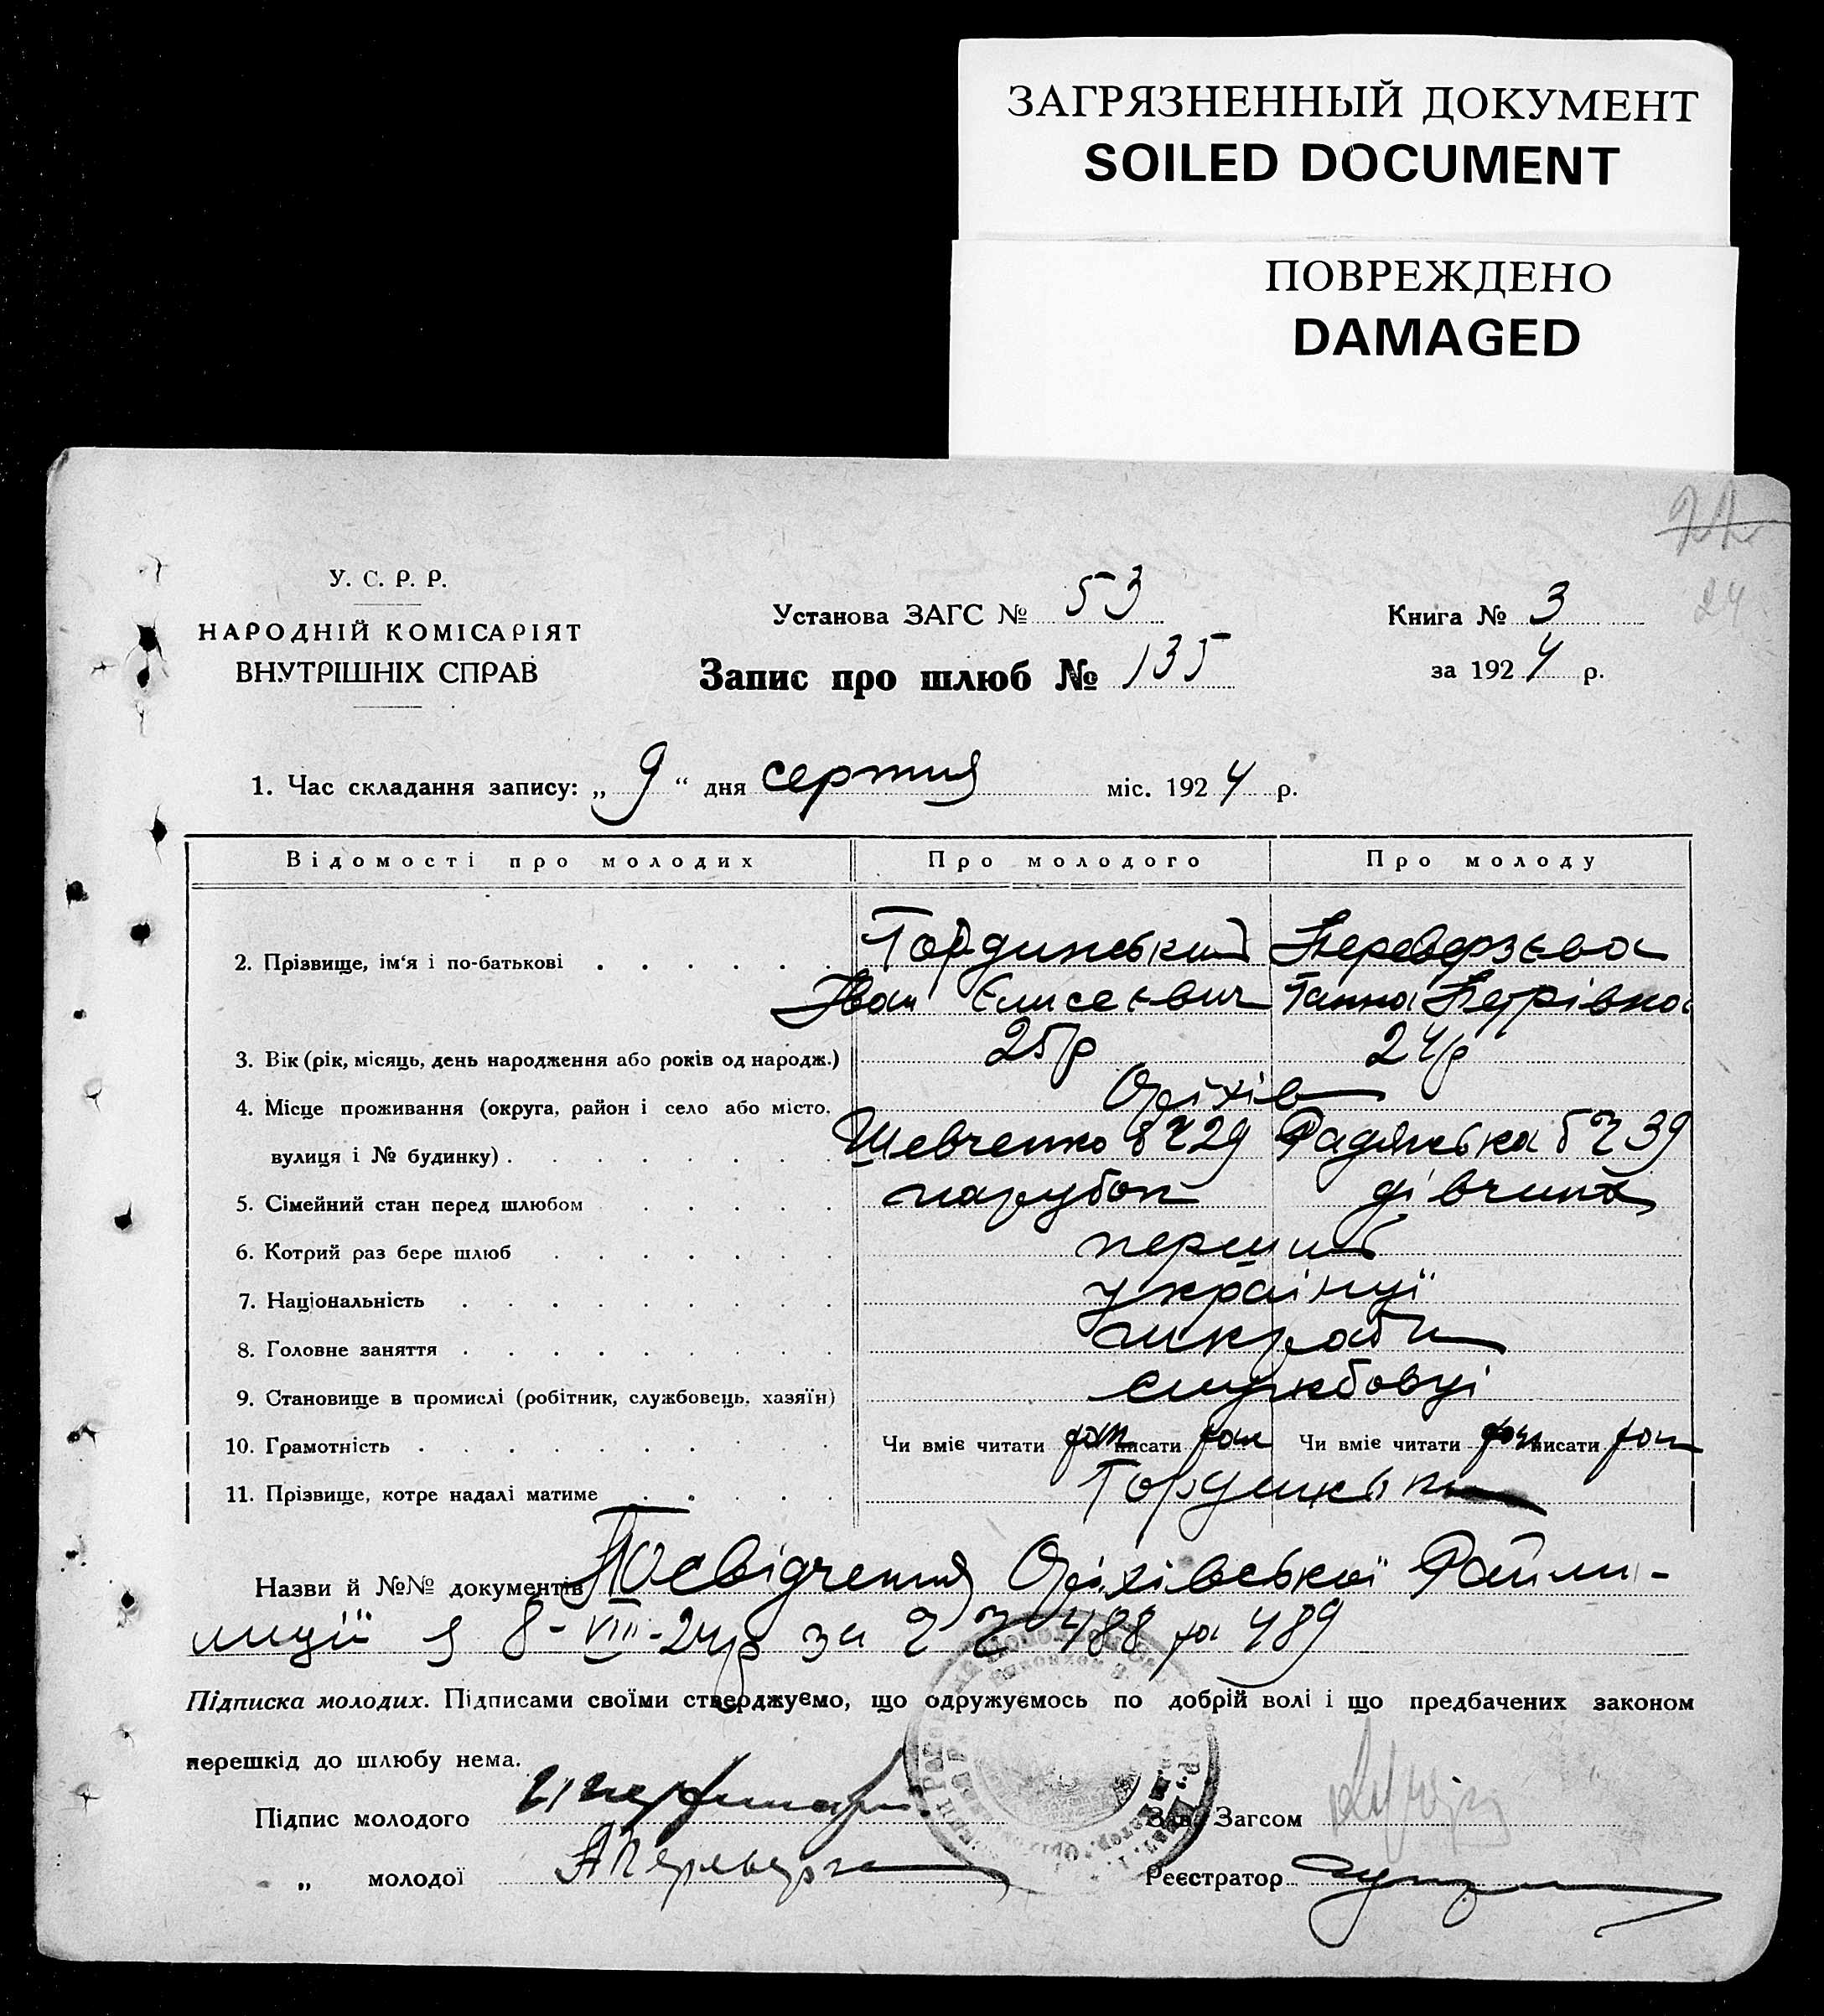 ЗАГРЯЗНЕННЫЙ ДОКУМЕНТ
SOILED DOCUMENT
ПОВРЕЖДЕНО
DAMAGED
24
У. С. Р. Р.
НАРОДНІЙ КОМІСАРІЯТ
ВНУТРІШНІХ СПРАВ
Установа ЗАГС № 53
Запис про шлюб № 135
Книга № 3
за 1924 р.
1. Час складання запису: „ 9 “ дня серпня міс. 1924 р.
Відомості про молодих Про молодого Про молоду
2. Прізвище, ім'я і по-батькові Гординський Переверзєва
Іван Єлисеєвич Ганна Петрівна
3. Вік (рік, місяць, день народження або років од народж.) 25 р 24 р
4. Місце проживання (округа, район і село або місто, Оріхів
вулиця і № будинку) Шевченко б Ч 29 Радянська б Ч 39
5. Сімейний стан перед шлюбом парубок дівчина
6. Котрий раз бере шлюб перший
7. Національність українці
8. Головне заняття
9. Становище в промислі (робітник, службовець, хазяїн) службовці
10. Грамотність Чи вміє читати так писати так Чи вміє читати так писати так
11. Прізвище, котре надалі матиме Гординські
Назви й №№ документів Посвідчення Оріхівської Райми-
ліції з 8-VIII-24 р за Ч Ч 488 та 489
Підписка молодих. Підписами своїми стверджуємо, що одружуємось по добрій волі і що предбачених законом
перешкід до шлюбу нема.
Підпис молодого
Зав. Загсом
„ молодої А Переверз
Реєстратор